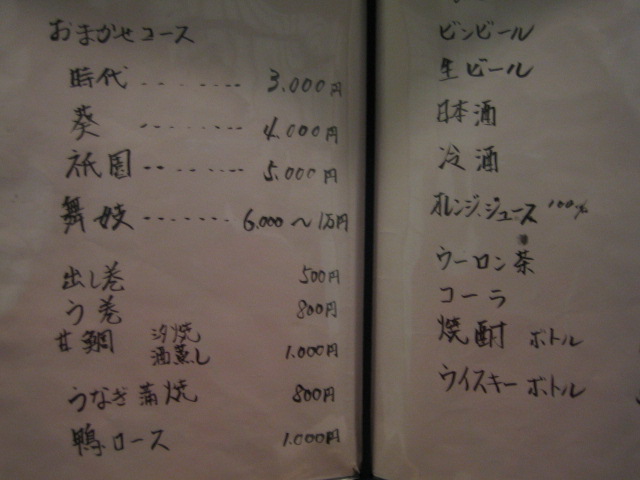 おまかせコース
時代 ........ 3.000円
葵 ........ 4.000円
祇園 ........ 5.000円
舞妓 ........ 6.000～1万円
出し巻 500円
う巻 800円
甘鯛 汐焼 酒蒸し 1.000円
うなぎ蒲焼 800円
鴨ロース 1.000円
ビンビール
生ビール
日本酒
冷酒
オレンジジュース 100%
ウーロン茶
コーラ
焼酎 ボトル
ウイスキー ボトル